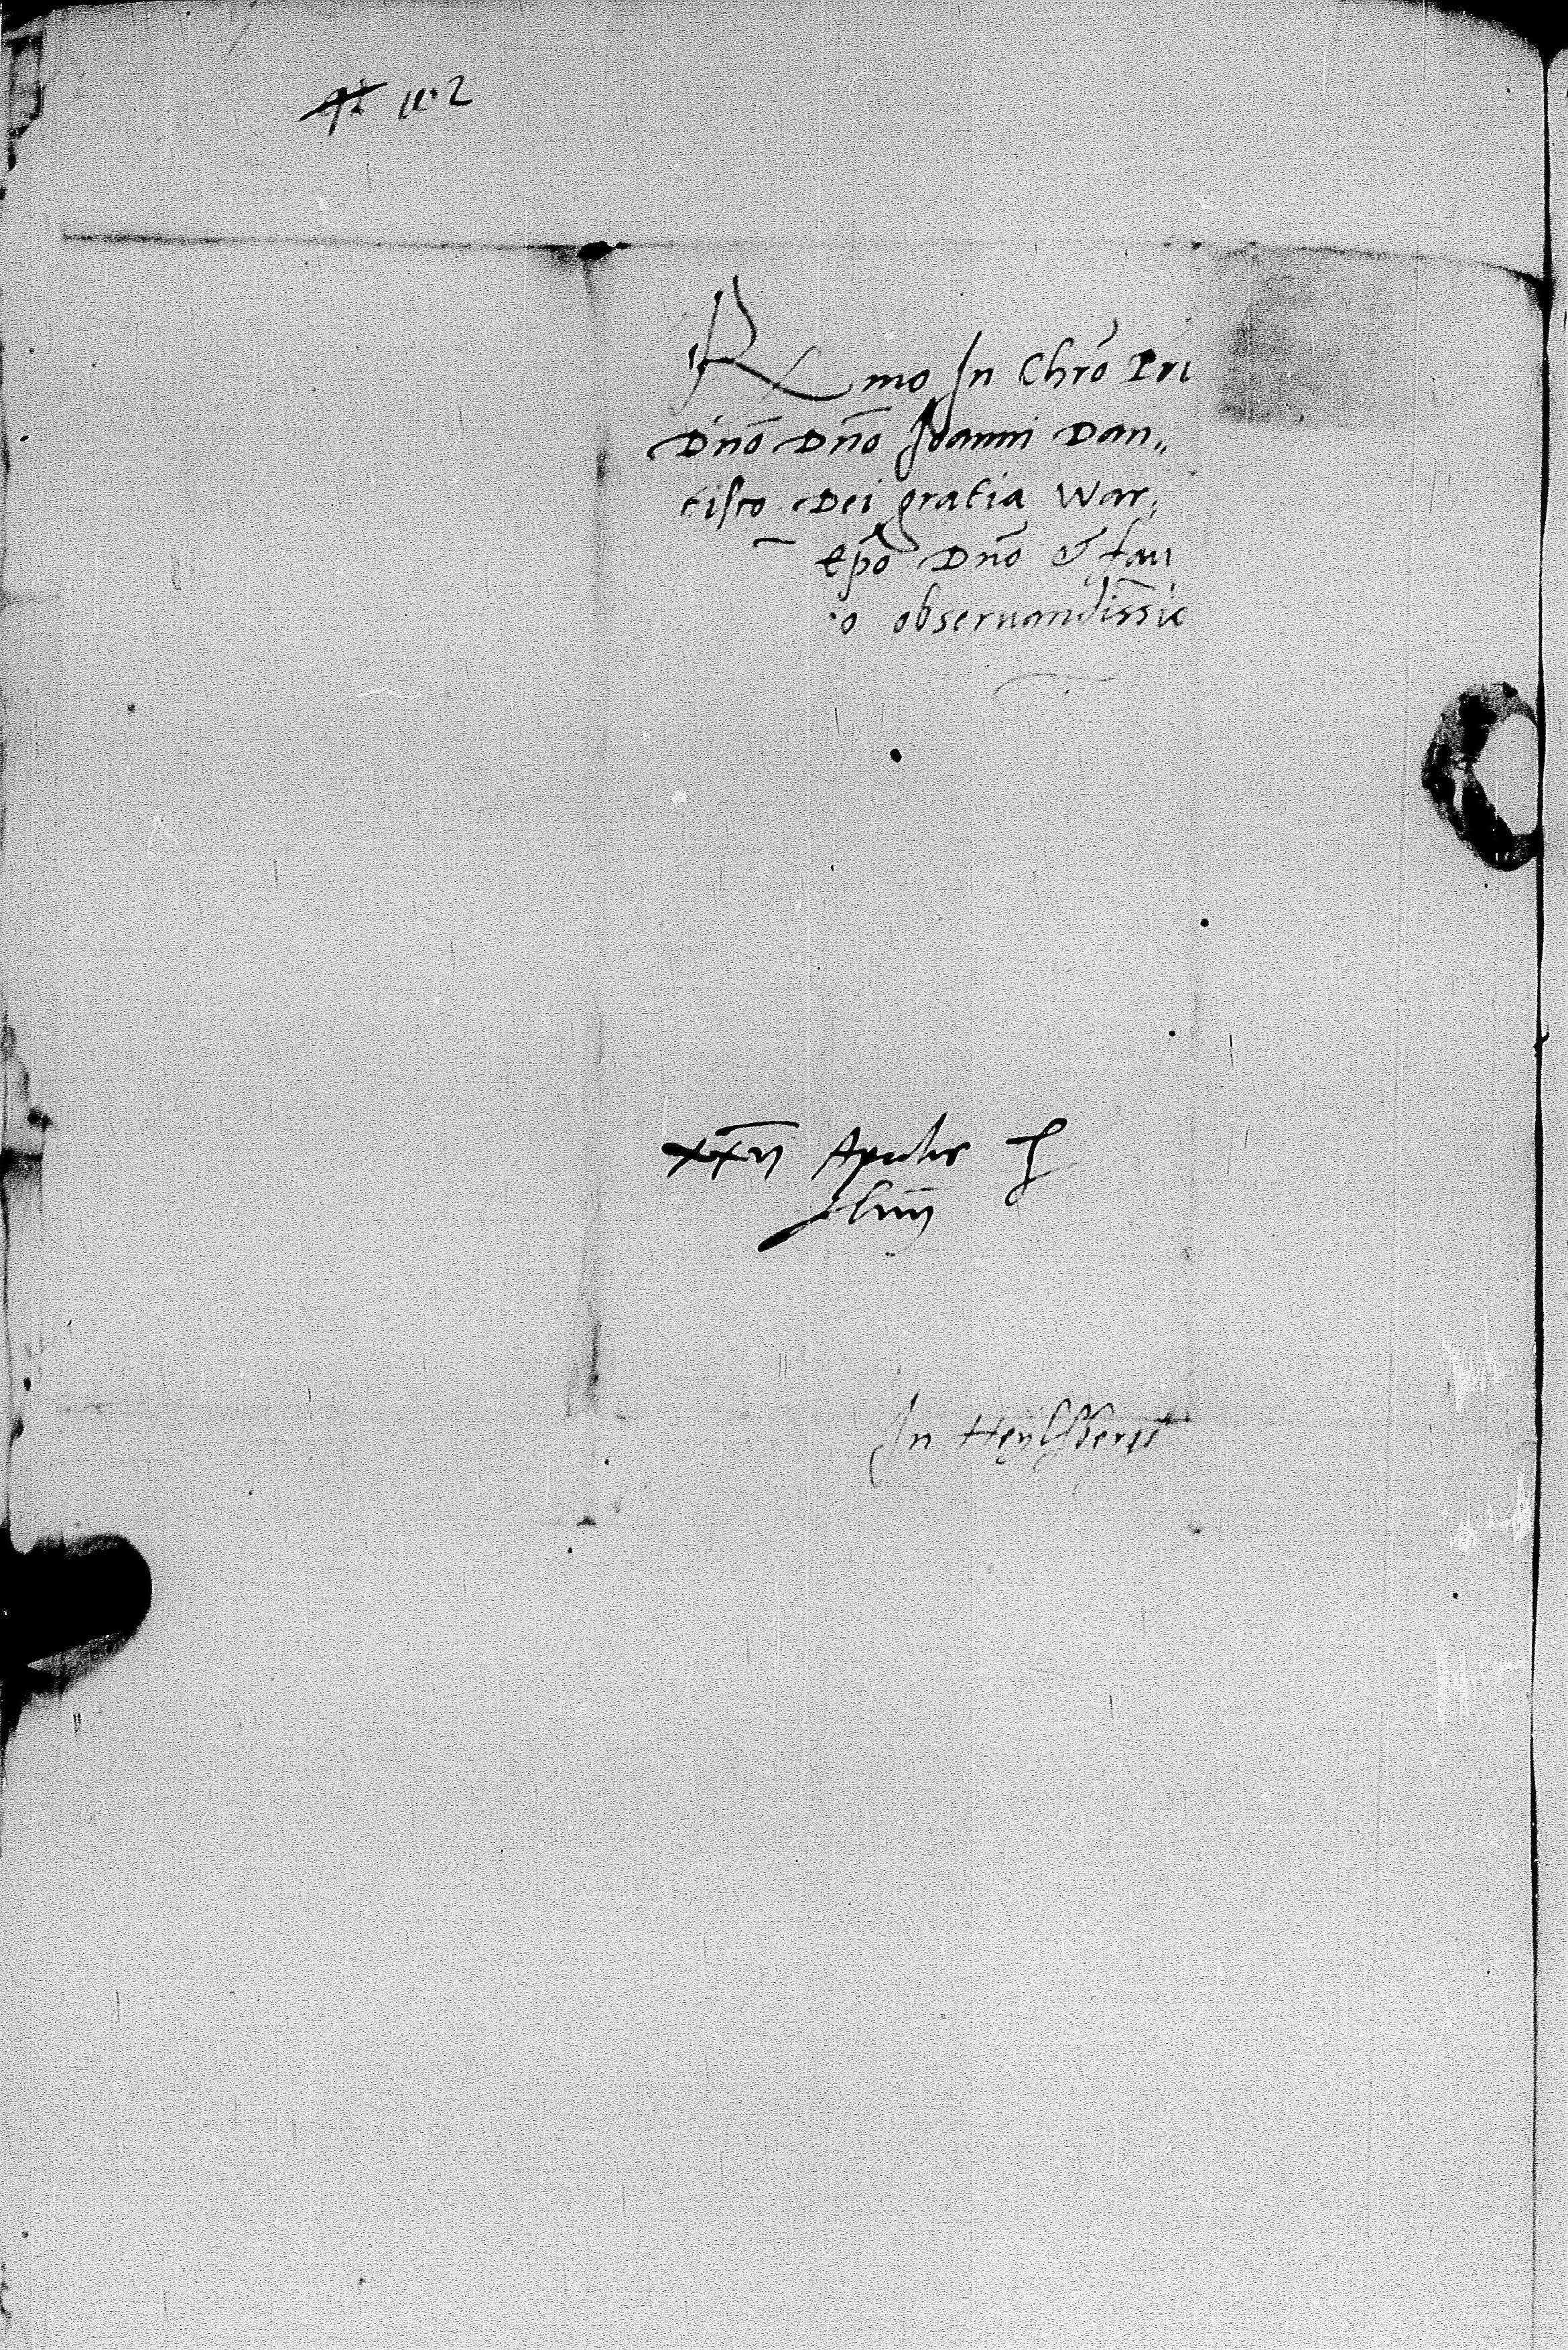 102
Rmo In Chrō Pri
Dnō Dnō Joanni Dan„
tisco Dei gratia War,
epō Dnō & fau
o obseruandissīo
xxvi Aprilis
In Heylsberg